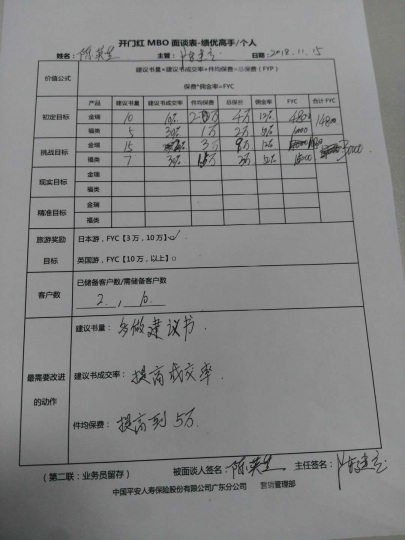 开门红 MBO 面谈表-绩优高手/个人
姓名： 陈英生 主管： 日期： 2018.11.15
价值公式 建议书量*建议书成交率*件均保费=总保费（FYP）
保费*佣金率=FYC
产品 建议书量 建议书成交率 件均保费 总保价 佣金率 FYC 合计 FYC
初定目标 金瑞 10 10% 4万 12% 4800
福类 5 30% 1万 2万
挑战目标 金瑞 15 3万 12%
福类 7 3万
现实目标 金瑞
福类
精准目标 金瑞
福类
旅游奖励目标 日本游，FYC【3 万，10 万】☑
英国游，FYC【10 万，以上】□
客户数 已储备客户数/需储备客户数
2 , 6
最需要改进的动作 建议书量： 多做建议书.
建议书成交率： 提高成交率
件均保费： 提高到5万
（第二联：业务员留存） 被面谈人签名： 陈英生 主任签名：
中国平安人寿保险股份有限公司广东分公司 营销管理部